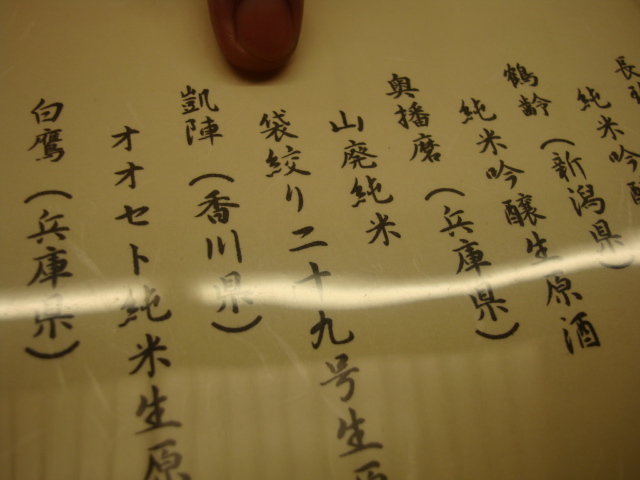 長
純米吟醸
鶴齢（新潟県）
純米吟醸生原酒
奥播磨（兵庫県）
山廃純米
袋絞り二十九号生原
凱陣（香川県）
オオセト純米生原
白鷹（兵庫県）